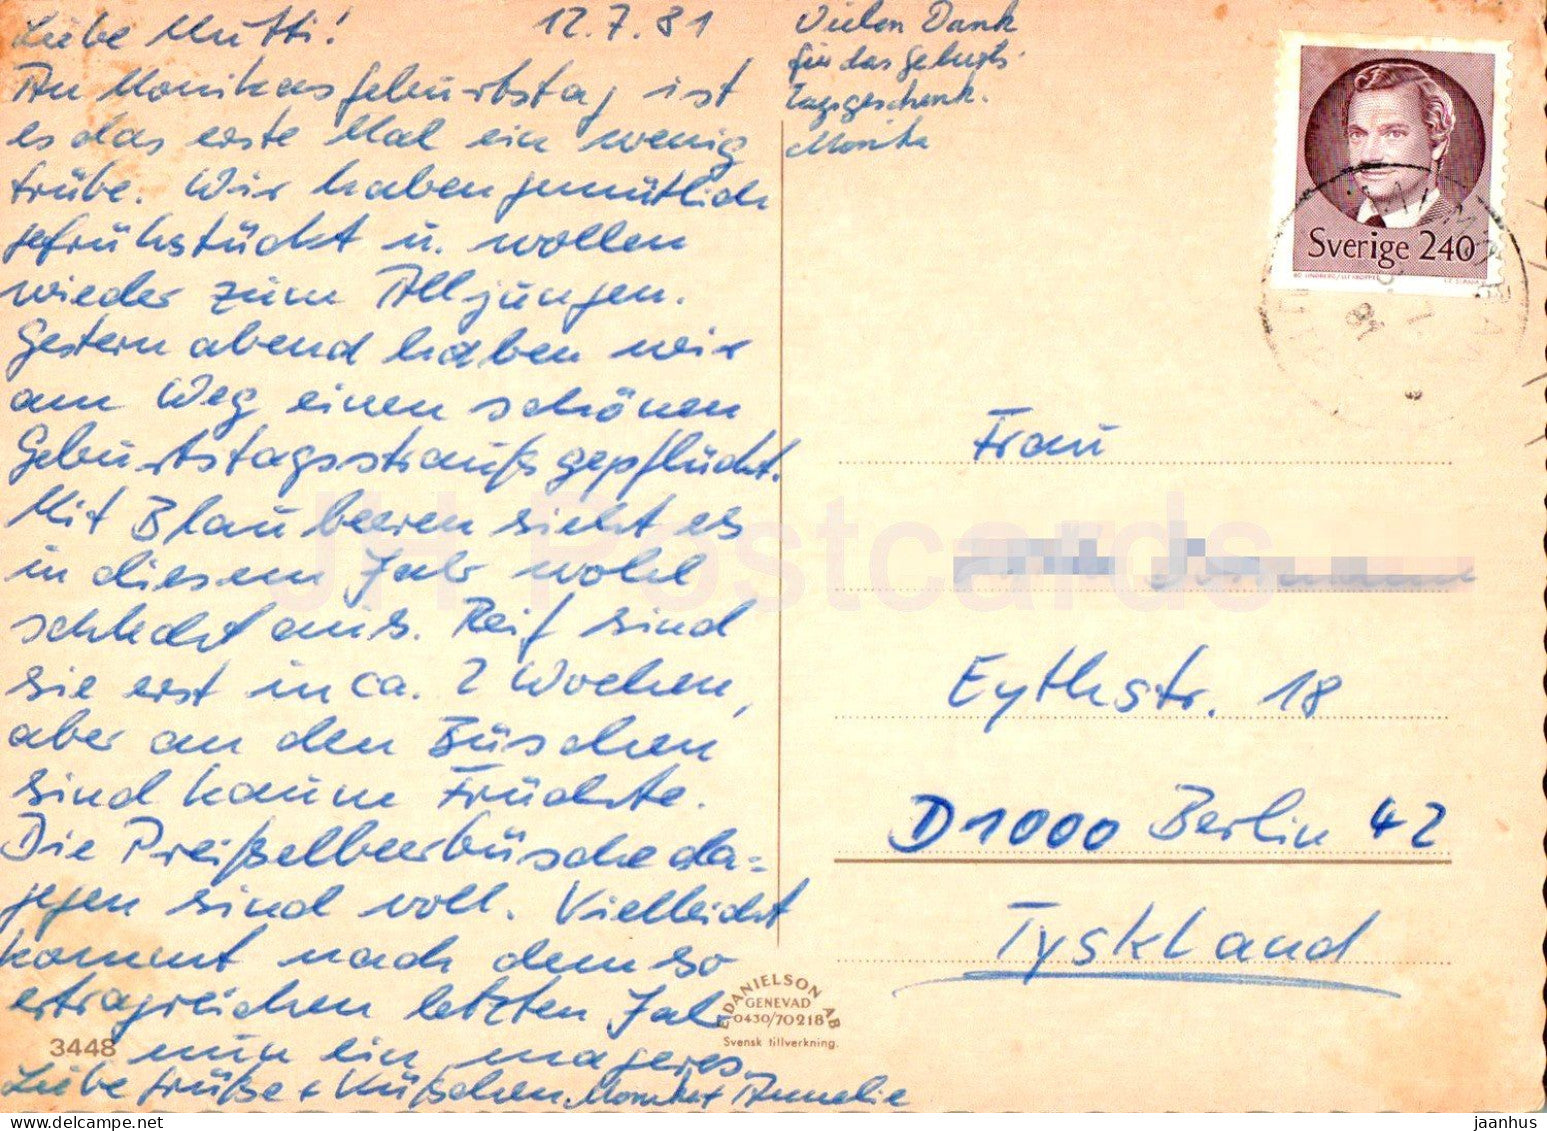 Liebe Mutti! 12.7.81
An Monikas Geburtstag ist
es das erste Mal ein wenig
trübe. Wir haben gemütlich
gefrühstückt u. wollen
wieder zum Alljungen.
Gestern abend haben wir
am Weg einen schönen
Geburtstagsstrauß gepflückt.
Mit Blaubeeren sieht es
in diesem Jahr wohl
schlecht aus. Reif sind
sie erst in ca. 2 Wochen,
aber an den Büschen
sind kaum Früchte.
Die Preißelbeerbüsche da=
gegen sind voll. Vielleicht
kommt nach dem so
ertragreichen letzten Jahr
nun ein mageres.
Liebe Grüße + Küßchen Monika + Annelie
3448
Vielen Dank
für das Geburts-
tagsgeschenk.
Monika
E. DANIELSON AB
GENEVAD
0430/70218
Svensk tillverkning.
Sverige 240
Frau
Eythstr. 18
D1000 Berlin 42
Tyskland
JH Postcards
www.delcampe.net
jaanhus